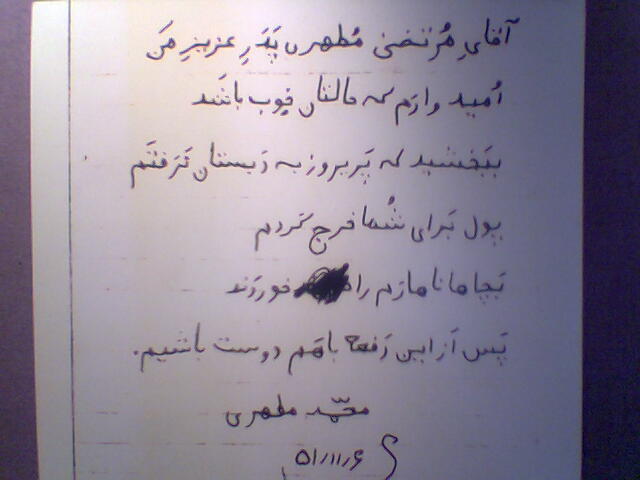 آقایِ مُرتضی مُطهری پَدَرِ عزیزِ مَن
اُمید وارَم که حالتان خوب باشَد
ببَخشید که پَریروز به دَبستان نَرَفتَم
پول بَرای شُما خرج کَردم
بَچا ها ناهارَم را خوردَند
پَس اَز این دَفعه باهَم دوست باشیم.
محمّد مطهری
۵۱/۱۱/۶